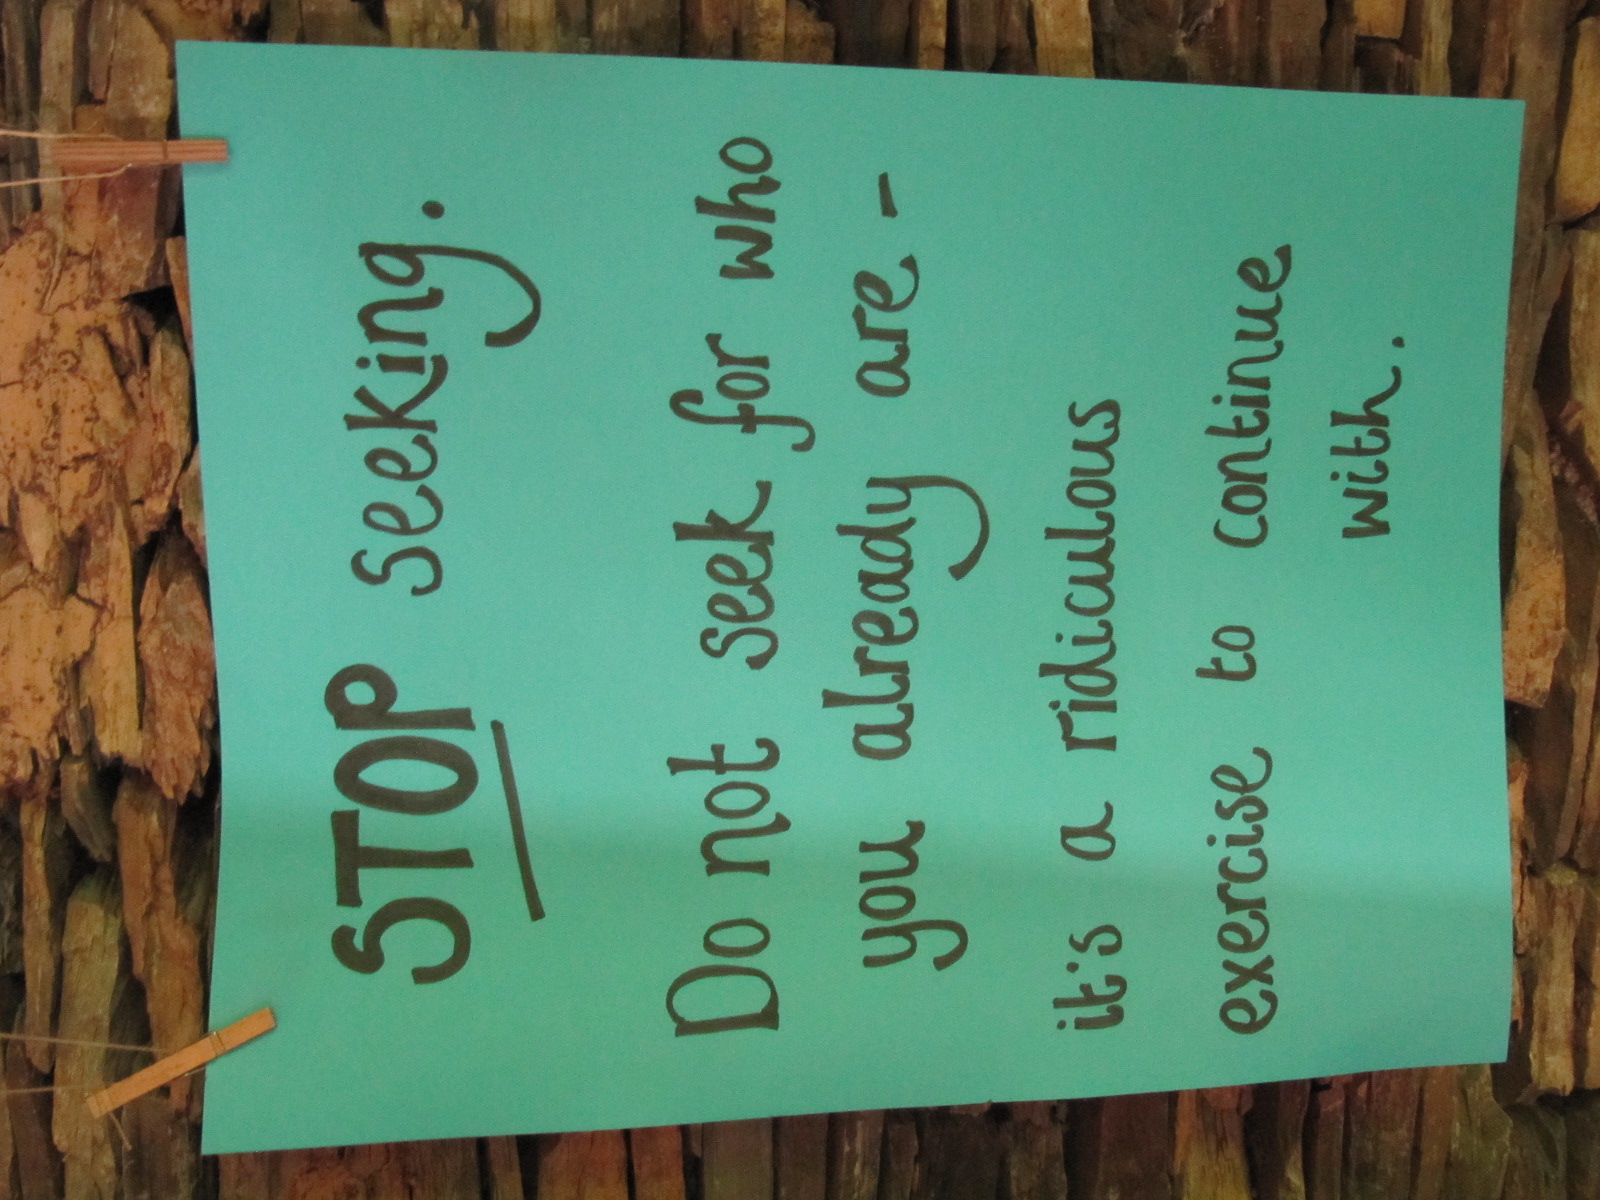 STOP seeking.
Do not seek for who
you already are -
it's a ridiculous
exercise to continue
with.